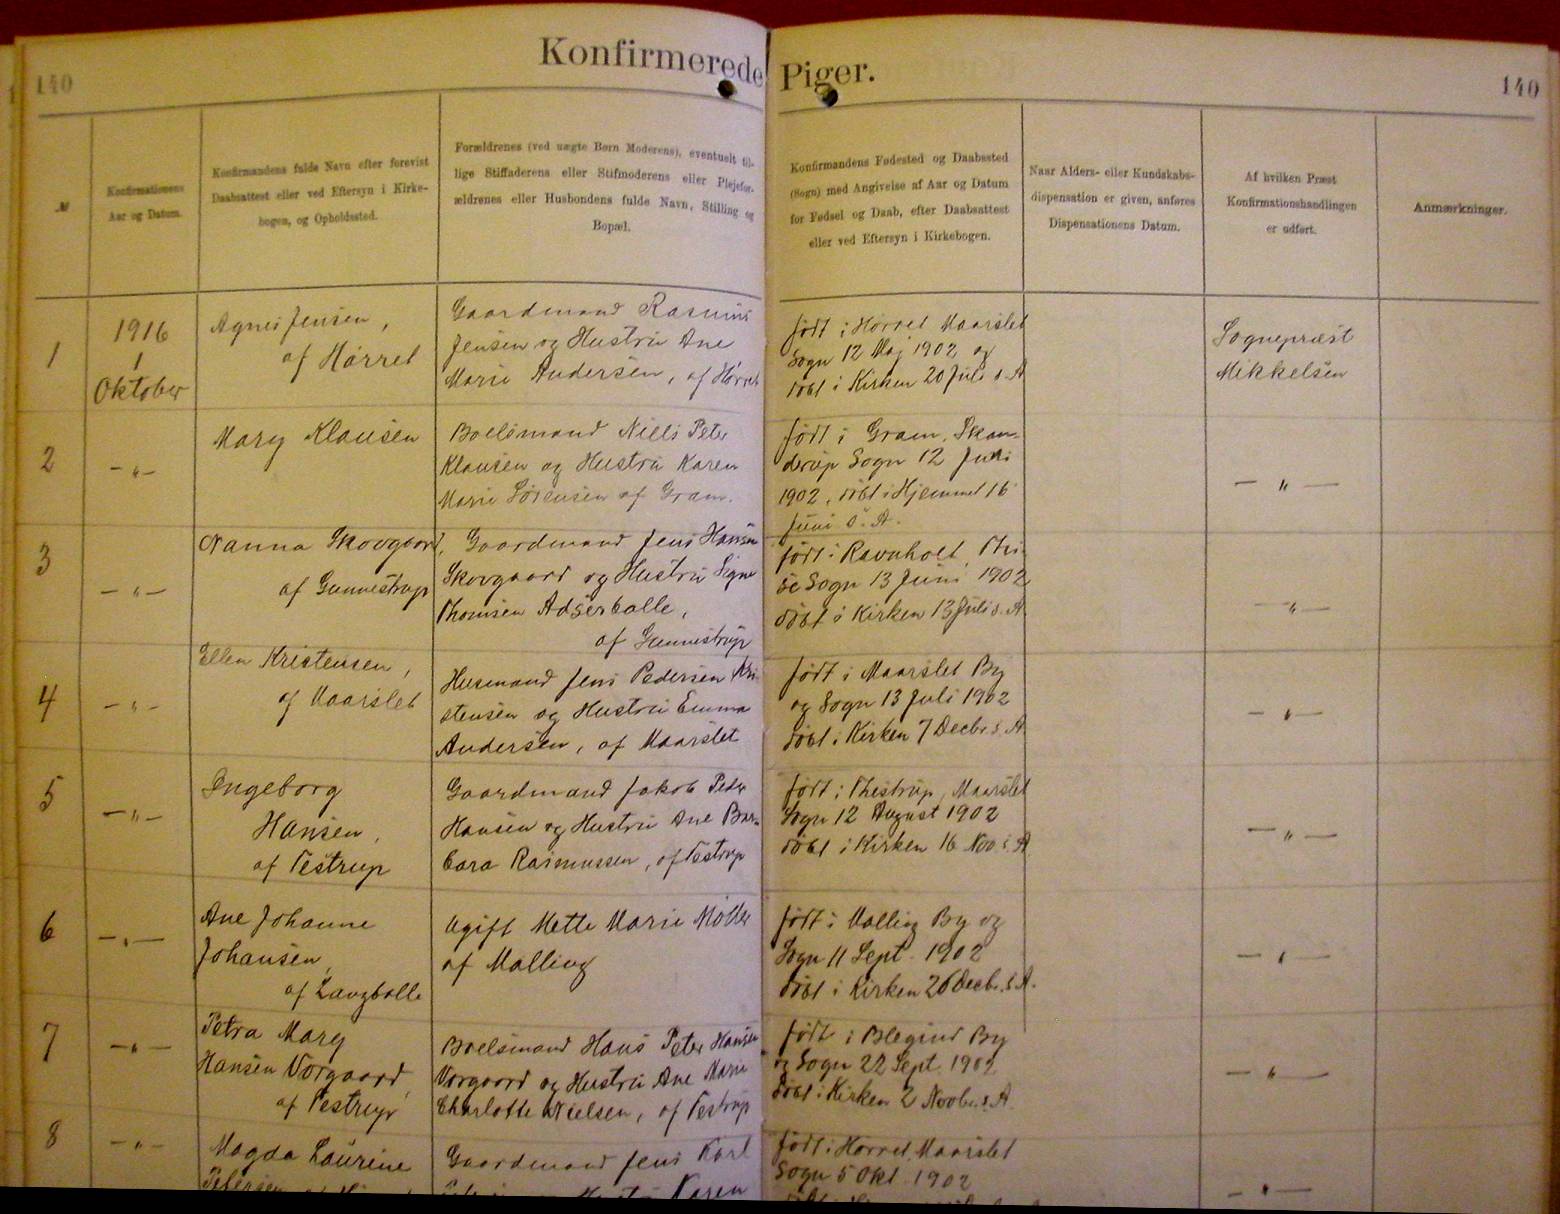 140
Konfirmerede Piger.
140
№
Konfirmationens
Aar og Datum.
Konfirmandens fulde Navn efter forevist
Daabsattest eller ved Eftersyn i Kirke-
bogen, og Opholdssted.
Forældrenes (ved uægte Børn Moderens), eventuelt til-
lige Stiffaderens eller Stifmoderens eller Plejefor-
ældrenes eller Husbondens fulde Navn, Stilling og
Bopæl.
Konfirmandens Fødested og Daabssted
(Sogn) med Angivelse af Aar og Datum
for Fødsel og Daab, efter Daabsattest
eller ved Eftersyn i Kirkebogen.
Naar Alders- eller Kundskabs-
dispensation er given, anføres
Dispensationens Datum.
Af hvilken Præst
Konfirmationshandlingen
er udført.
Anmærkninger.
1
1916
1
Oktober
Agnes Jensen,
af Hørret
Gaardmand Rasmus
Jensen og Hustru Ane
Marie Andersen, af Hørret
født i Hørret Maarslet
Sogn 12 Maj 1902 og
døbt i Kirken 20 Juli s. A
Sognepræst
Mikkelsen
2
-"-
Mary Klausen
Boelsmand Niels Peter
Klausen og Hustru Karen
Marie Sørensen af Gram.
født i Gram, Skan-
derup Sogn 12 Juni
1902, døbt i Hjemmet 16
Juni s. A.
-"-
3
-"-
Nanna Skovgaard,
af Gunnestrup
Gaardmand Jens Hansen
Skovgaard og Hustru Signe
Thomsen Adserballe,
af Gunnestrup
født i Ravnholt,
Sogn 13 Juni 1902
døbt i Kirken 13 Juli s. A.
-"-
4
-"-
Ellen Kristensen,
af Maarslet
Husmand Jens Pedersen Kri-
stensen og Hustru Emma
Andersen, af Maarslet
født i Maarslet By
og Sogn 13 Juli 1902
døbt i Kirken 7 Decbr. s. A.
-"-
5
-"-
Ingeborg
Hansen,
af Testrup
Gaardmand Jakob Peder
Hansen og Hustru Ane Bar-
bara Rasmussen, af Testrup
født i Thestrup, Maarslet
Sogn 12 August 1902
døbt i Kirken 16 Nov. s. A
-"-
6
-"-
Ane Johanne
Johansen,
af Langballe
Ugift Mette Marie Møller
af Malling
født i Malling By og
Sogn 11 Sept. 1902
døbt i Kirken 26 Decbr. s. A.
-"-
7
-"-
Petra Mary
Hansen Vorgaard,
af Testrup
Boelsmand Hans Peter Hansen
Vorgaard og Hustru Ane Marie
Charlotte Nielsen, af Testrup
født i Blegind By
og Sogn 22 Sept. 1902
døbt i Kirken 2 Novbr. s. A.
-"-
8
-"-
Magda Laurine
Petersen
Gaardmand Jens Karl
Karen
født i Hørret Maarslet
Sogn 5 Okt. 1902
-"-